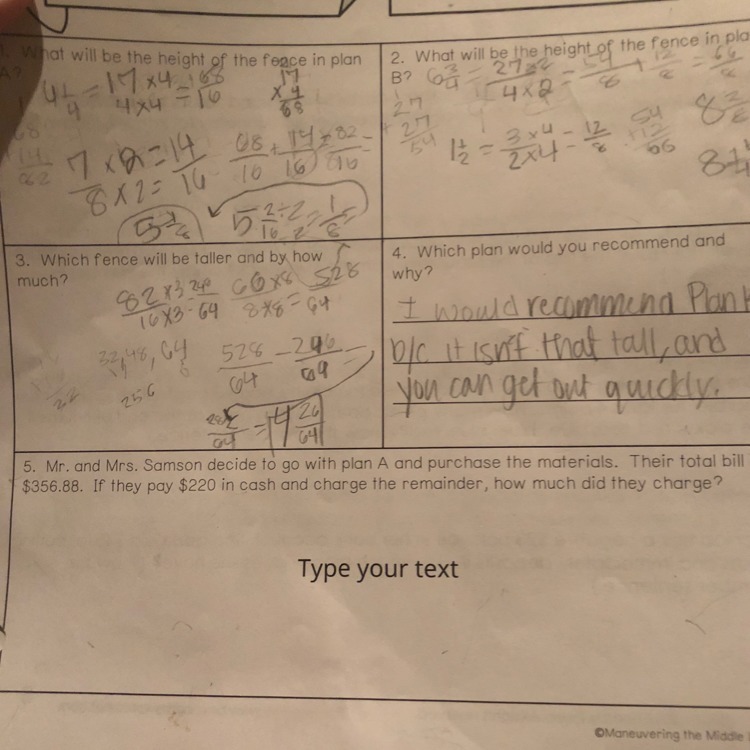 1. What will be the height of the fence in plan
A?
4 1/4 = 17 ×4 / 4×4 = 68/16
17
× 4
68
7 × 2 = 14
8 × 2 = 16
68/16 + 14/16 = 82/16 =
5 1/8
5 2÷2 / 16÷2 = 1/8 =
2. What will be the height of the fence in pla
B? 6 3/4 = 27×2 / 4×2 = 54/8 + 12/8 = 66/8
27
+27
54
1 1/2 = 3×4 / 2×4 = 12/8
54
+12
66
8 2/8
8 1/4
3. Which fence will be taller and by how
much?
82 ×3 / 16×3
66×8 / 8×8 = 528/64
32, 48, 64
256
528/64 - 246/64 =
= 4 26/64
4. Which plan would you recommend and
why?
I would recommend Plan
b/c it isn't that tall, and
you can get out quickly.
5. Mr. and Mrs. Samson decide to go with plan A and purchase the materials. Their total bill
$356.88. If they pay $220 in cash and charge the remainder, how much did they charge?
Type your text
©Maneuvering the Middle